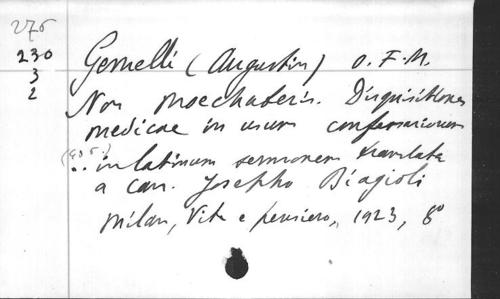 276
230
3
2
Gemelli (Augustin) O.F.M.
Non moechaberis. Disquisitiones
medicae in usum confessariorum
.. in latinum sermonem translata
a can. Josepho Biagioli
Milan, Vita e pensiero, 1923, 8°